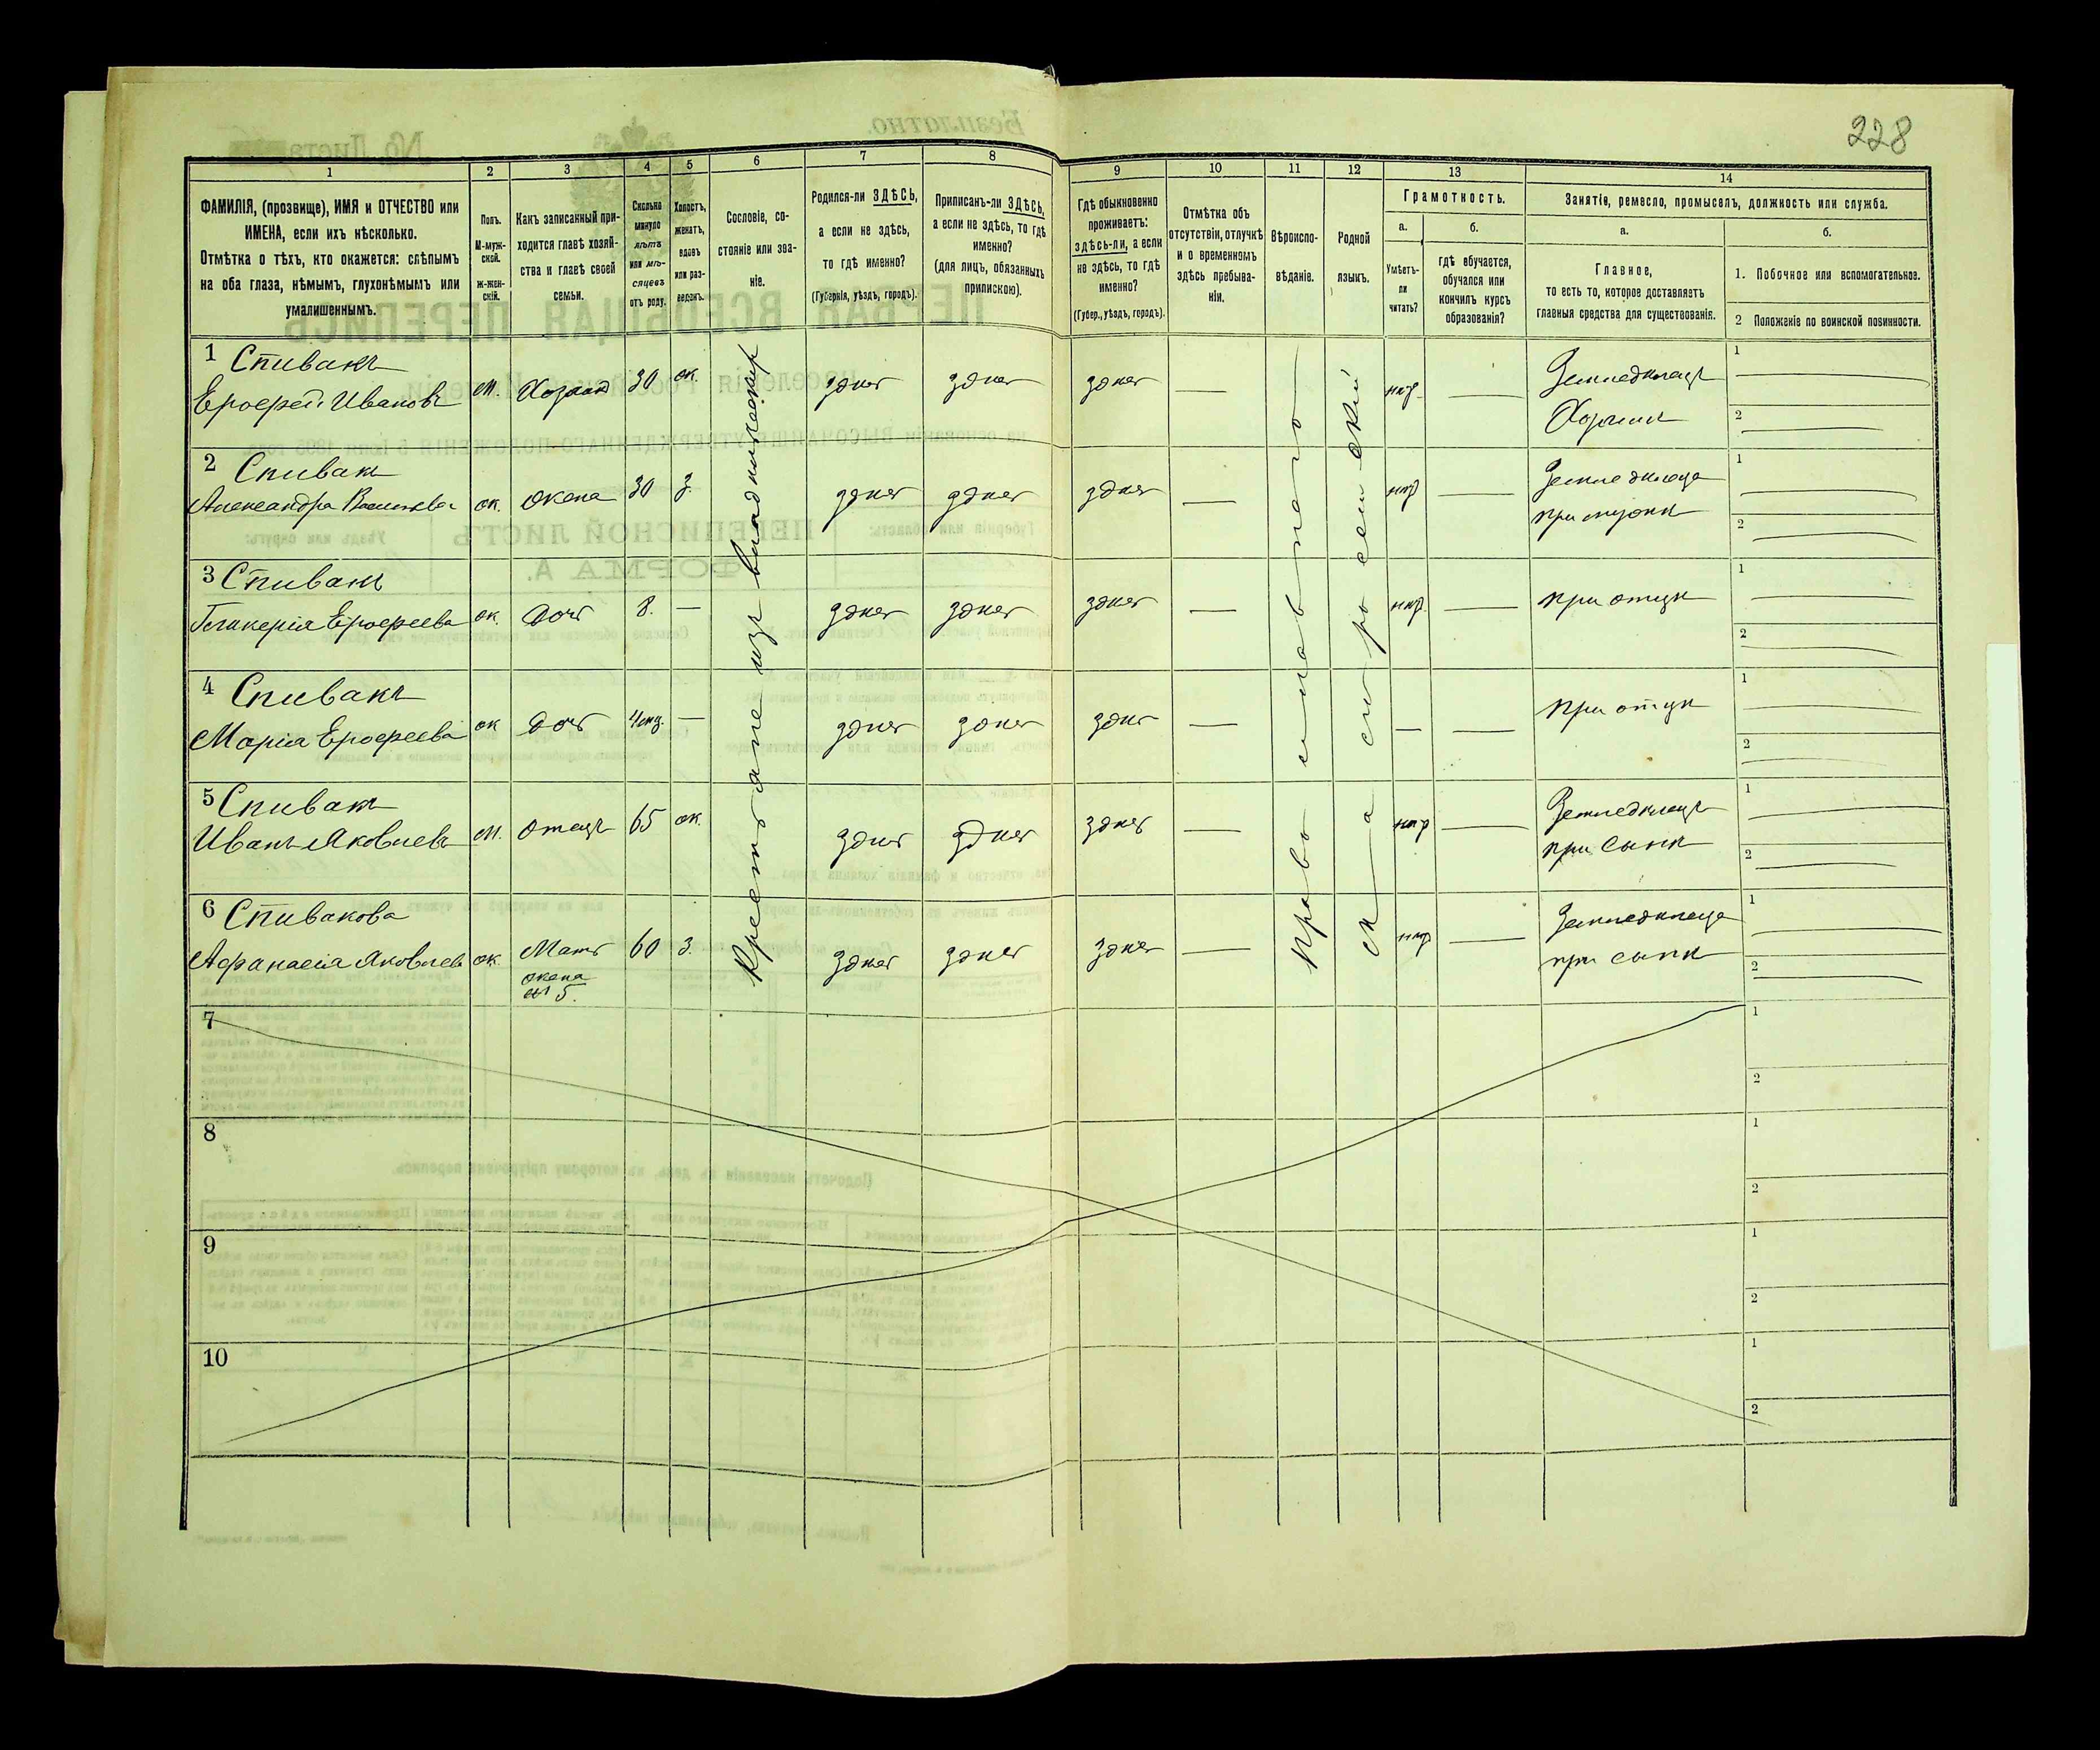 228
1
2
3
4
5
6
7
8
9
10
11
12
13
14
ФАМИЛІЯ, (прозвище), ИМЯ и ОТЧЕСТВО или
ИМЕНА, если ихъ нѣсколько.
Отмѣтка о тѣхъ, кто окажется: слѣпымъ
на оба глаза, нѣмымъ, глухонѣмымъ или
умалишеннымъ.
Полъ.
М-муж-
ской.
Ж-жен-
скій.
Какъ записанный при-
ходится главѣ хозяй-
ства и главѣ своей
семьи.
Сколько
минуло
лѣтъ
или мѣ-
сяцевъ
отъ роду.
Холостъ,
женатъ,
вдовъ
или раз-
веденъ.
Сословіе, со-
стояніе или зва-
ніе.
Родился-ли ЗДѢСЬ,
а если не здѣсь,
то гдѣ именно?
(Губернія, уѣздъ, городъ).
Приписанъ-ли ЗДѢСЬ,
а если не здѣсь, то гдѣ
именно?
(для лицъ, обязанныхъ
припискою).
Гдѣ обыкновенно
проживаетъ:
здѣсь-ли, а если
не здѣсь, то гдѣ
именно?
(Губер., уѣздъ, городъ).
Отмѣтка объ
отсутствіи, отлучкѣ
и о временномъ
здѣсь пребыва-
ніи.
Вѣроиспо-
вѣданіе.
Родной
языкъ.
Грамотность.
а.
б.
Умѣетъ-
ли
читать?
гдѣ обучается,
обучался или
кончилъ курсъ
образованія?
Занятіе, ремесло, промыселъ, должность или служба.
а.
б.
Главное,
то есть то, которое доставляетъ
главныя средства для существованія.
1. Побочное или вспомогательное.
2 Положеніе по воинской повинности.
Крестьяне изъ владѣльческихъ
Православнаго
Малороссійскій
1 Спивакъ
Ерофей Ивановъ
м. Хозяинъ 30 ж. здѣсь здѣсь здѣсь — нѣтъ — Земледѣлецъ
Хозяинъ
1
2
2 Спивакъ
Александра Васильева
ж. жена 30 з. здѣсь здѣсь здѣсь — нѣтъ — Земледѣлица
при мужѣ
1
2
3 Спивакъ
Гликерія Ерофеева
ж. дочь 8. — здѣсь здѣсь здѣсь — нѣтъ — при отцѣ
1
2
4 Спивакъ
Марія Ерофеева
ж дочь 4 мц. — здѣсь здѣсь здѣсь — — — при отцѣ
1
2
5 Спивакъ
Иванъ Яковлевъ
м. отецъ 65 ж. здѣсь здѣсь здѣсь — нѣтъ — Земледѣлецъ
при сынѣ
1
2
6 Спивакова
Афанасія Яковлева
ж. Мать 60 з. здѣсь здѣсь здѣсь — нѣтъ — Земледѣлица
жена
№ 5.
при сынѣ
1
2
7
1
2
8
1
2
9
1
2
10
1
2